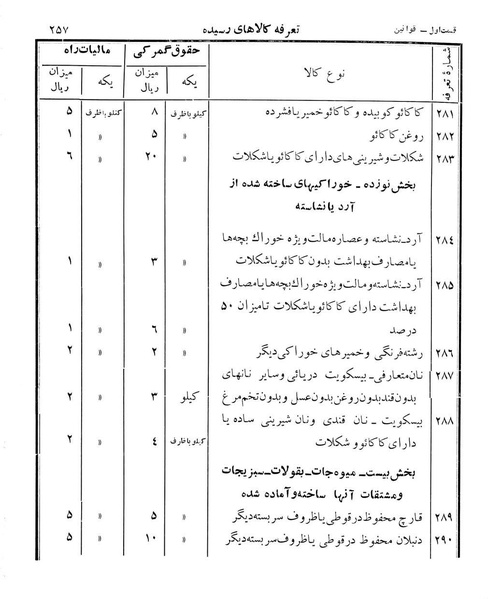 قسمت اول – قوانین تعرفه کالاهای رسیده ۲۵۷
شمارهٔ تعرفه نوع کالا حقوق گمرکی مالیات راه
یکه میزان ریال یکه میزان ریال
۲۸۱ کاکائو کوبیده و کاکائو خمیر یا فشرده کیلو با ظرف ۸ کیلو با ظرف ۵
۲۸۲ روغن کاکائو » ۵ » ۱
۲۸۳ شکلات و شیرینی های دارای کاکائو یا شکلات » ۲۰ » ۶
بخش نوزده – خوراکیهای ساخته شده از
آرد یا نشاسته
۲۸٤ آرد–نشاسته و عصاره مالت ویژه خوراك بچه‌ها
یا مصارف بهداشت بدون کاکائو یا شکلات » ۳ » ۱
۲۸۵ آرد–نشاسته و مالت ویژه خوراك بچه‌ها یا مصارف
بهداشت دارای کاکائو یا شکلات تا میزان ۵۰
درصد » ۶ » ۱
۲۸۶ رشته فرنگی و خمیرهای خوراکی دیگر » ۲ » ۲
۲۸۷ نان متعارفی – بیسکویت دریائی و سایر نانهای
بدون قند بدون روغن بدون عسل و بدون تخم مرغ کیلو ۳ » ۲
۲۸۸ بیسکویت – نان قندی و نان شیرینی ساده یا
دارای کاکائو و شکلات کیلو با ظرف ٤ » ۲
بخش بیست – میوه‌جات – بقولات – سبزیجات
و مشتقات آنها ساخته و آماده شده
۲۸۹ قارچ محفوظ در قوطی یا ظروف سر بسته دیگر » ۵ » ۵
۲۹۰ دنبلان محفوظ در قوطی یا ظروف سر بسته دیگر » ۱۰ » ۵